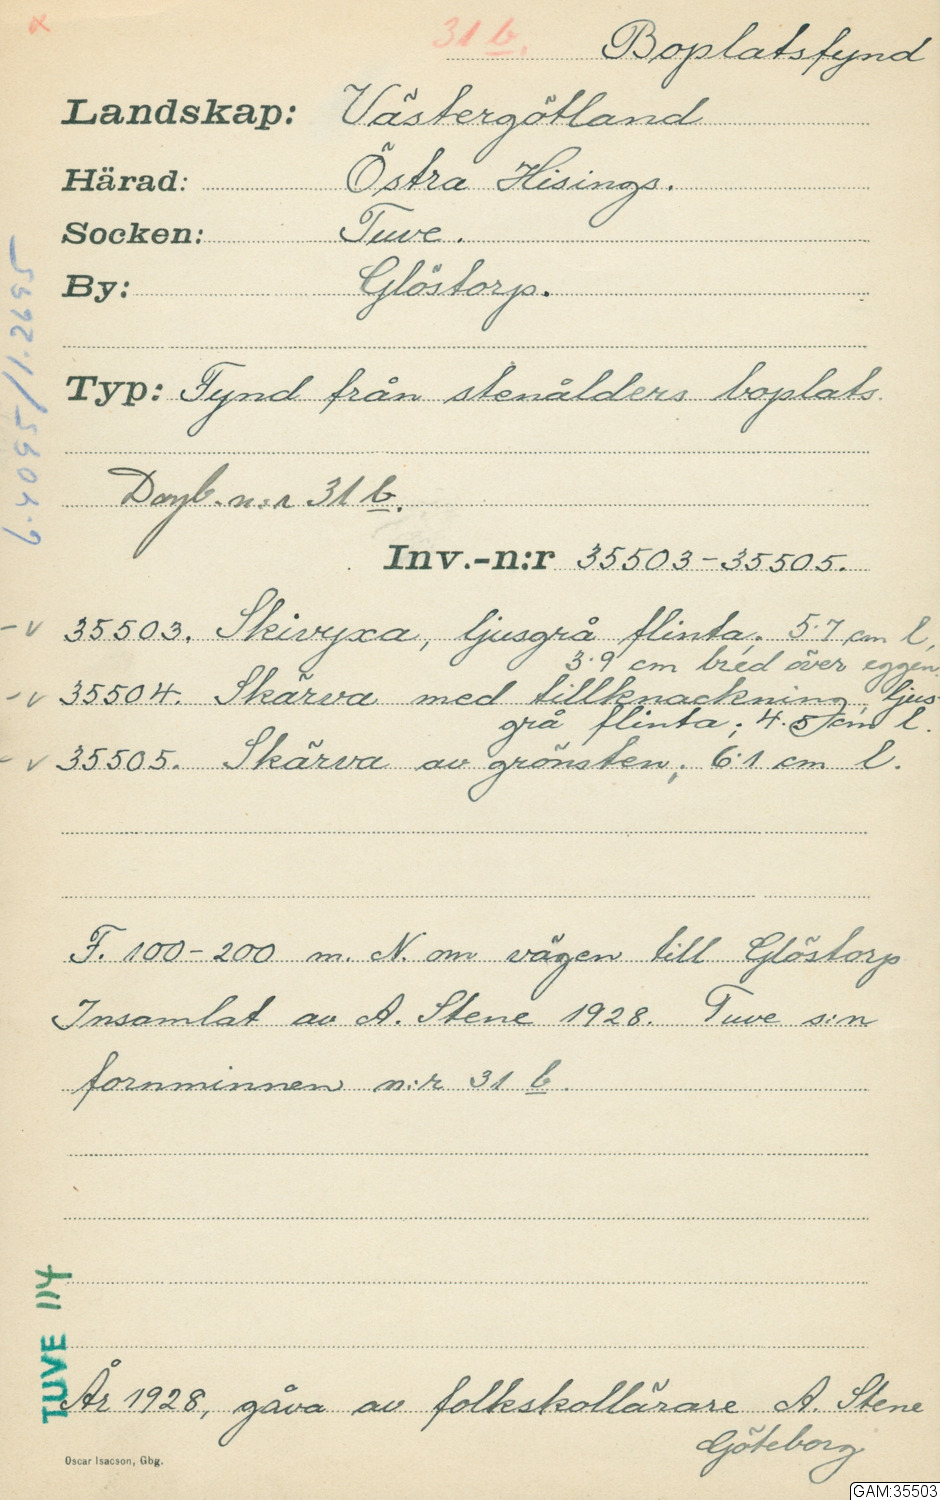 31 b.
Boplatsfynd
Landskap: Västergötland
Härad: Östra Hisings.
Socken: Tuve.
By: Glöstorp.
Typ: Fynd från stenålders boplats.
Dagb. n:r 31 b.
Inv.-n:r 35503-35505.
-v 35503. Skivyxa, ljusgrå flinta, 5.7 cm l,
3.9 cm bred över eggen.
-v 35504. Skärva med tillknackning, ljus-
grå flinta; 4.5 cm l.
-v 35505. Skärva av grönsten; 6.1 cm l.
F. 100-200 m. N. om vägen till Glöstorp
Insamlat av A. Stene 1928. Tuve s:n
fornminnen n:r 31 b.
År 1928, gåva av folkskollärare A. Stene
Göteborg
6.4095/1.2695
TUVE 114
Oscar Isacson, Gbg.
GAM:35503